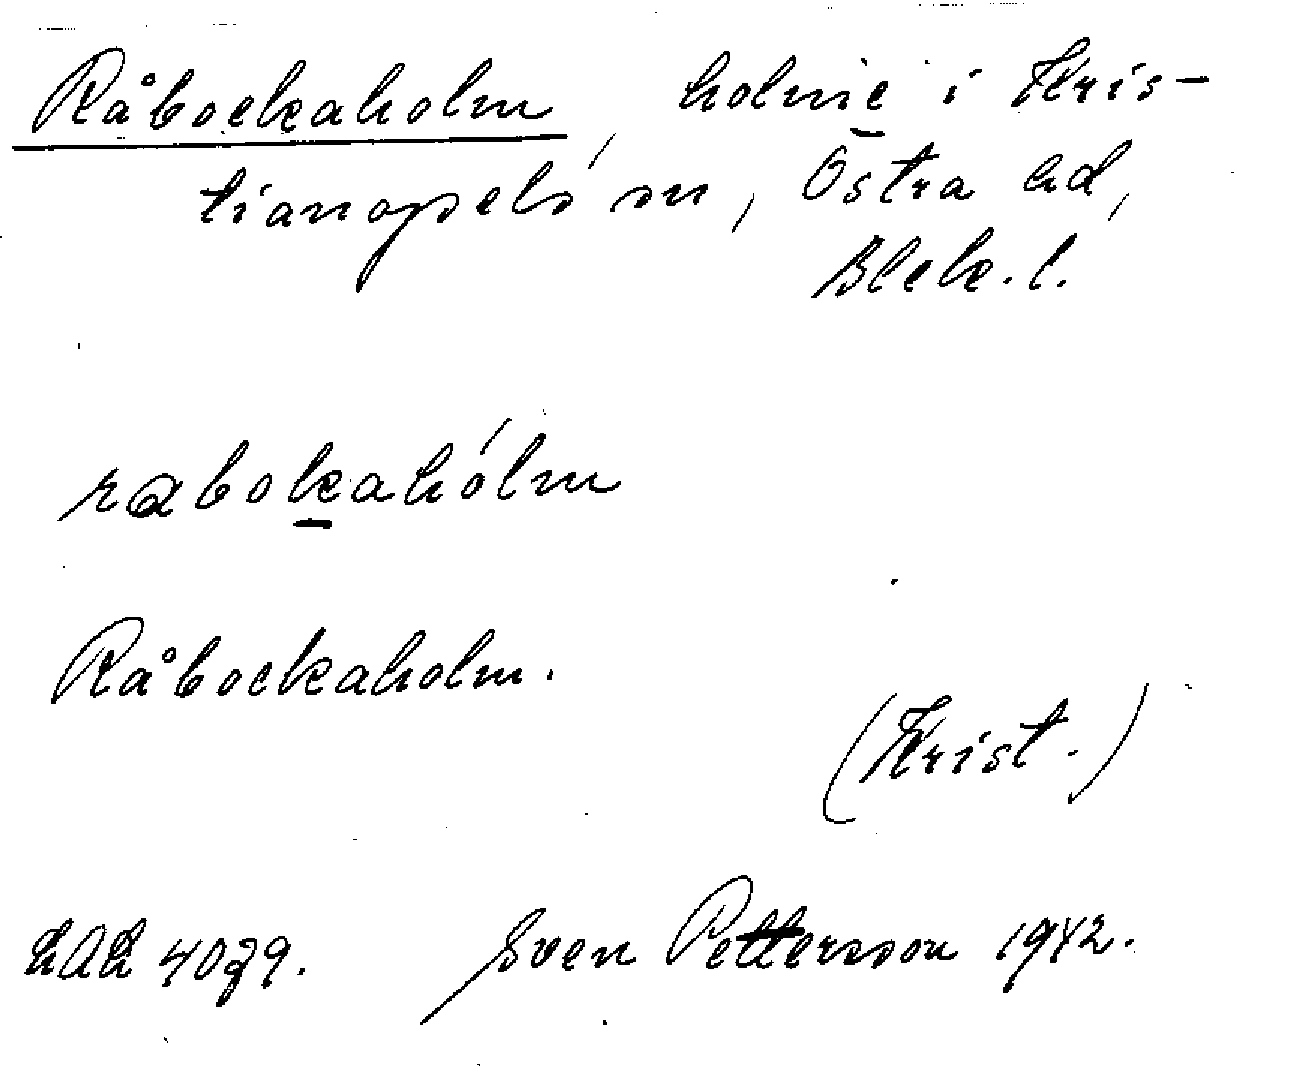 Råbockaholm, holme i Kris-
tianopels sn, Östra hd,
Blek. l.
rabokahólm
Råbockaholm.
(Krist.)
LAL 4079. Sven Pettersson 1942.